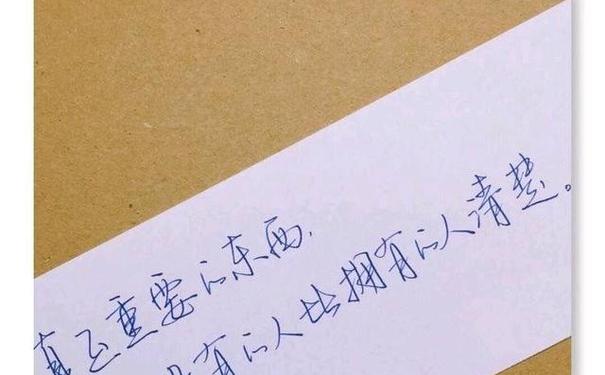 真正重要的东西,
没有的人比拥有的人清楚。